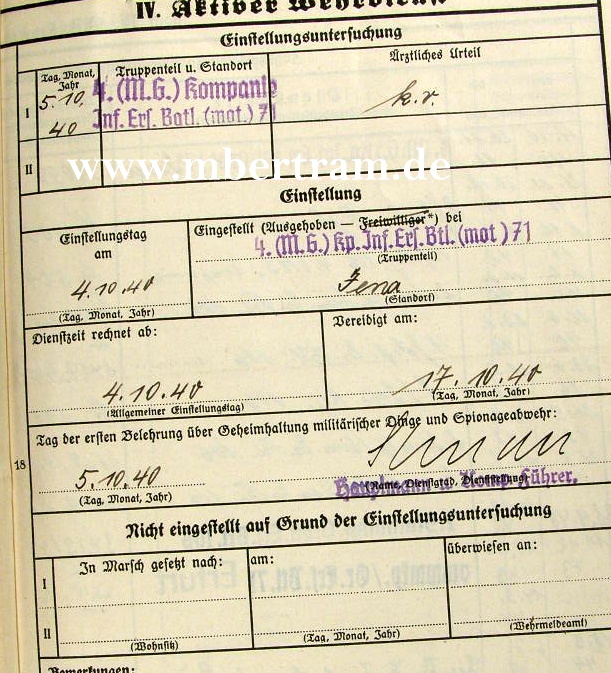 IV. Aktiver Wehrdienst
Einstellungsuntersuchung
Tag, Monat, Jahr
Truppenteil u. Standort
Ärztliches Urteil
I
5.10.
40
4. (M.G.) Kompanie
Inf. Ers. Batl. (mot.) 71
k.v.
II
www.mbertram.de
Einstellung
Einstellungstag
am
4.10.40
(Tag, Monat, Jahr)
Eingestellt (Ausgehoben — Freiwilliger*) bei
4. (M.G.) Kp. Inf. Ers. Btl. (mot) 71
(Truppenteil)
Jena
(Standort)
Dienstzeit rechnet ab:
4.10.40
(Allgemeiner Einstellungstag)
Vereidigt am:
17.10.40
(Tag, Monat, Jahr)
Tag der ersten Belehrung über Geheimhaltung militärischer Dinge und Spionageabwehr:
5.10.40
(Tag, Monat, Jahr)
Hauptmann u. Komp. Führer.
(Name, Dienstgrad, Dienststellung)
18
Nicht eingestellt auf Grund der Einstellungsuntersuchung
In Marsch gesetzt nach:
am:
überwiesen an:
I
II
(Wohnsitz)
(Tag, Monat, Jahr)
(Wehrmeldeamt)
Bemerkungen: